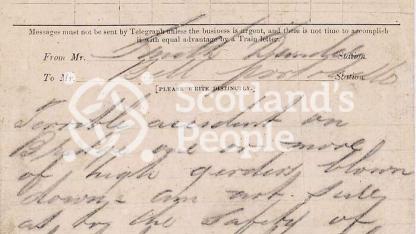 Messages must not be sent by Telegraph unless the business is urgent, and there is not time to accomplish
it with equal advantage by a Train letter.
From Mr. Smith Dundee Station
To Mr. Station
[PLEASE WRITE DISTINCTLY.]
Scotland's
People
Terrible accident on
Bridge one or more
of high girders blown
down am not sure
as to the safety of